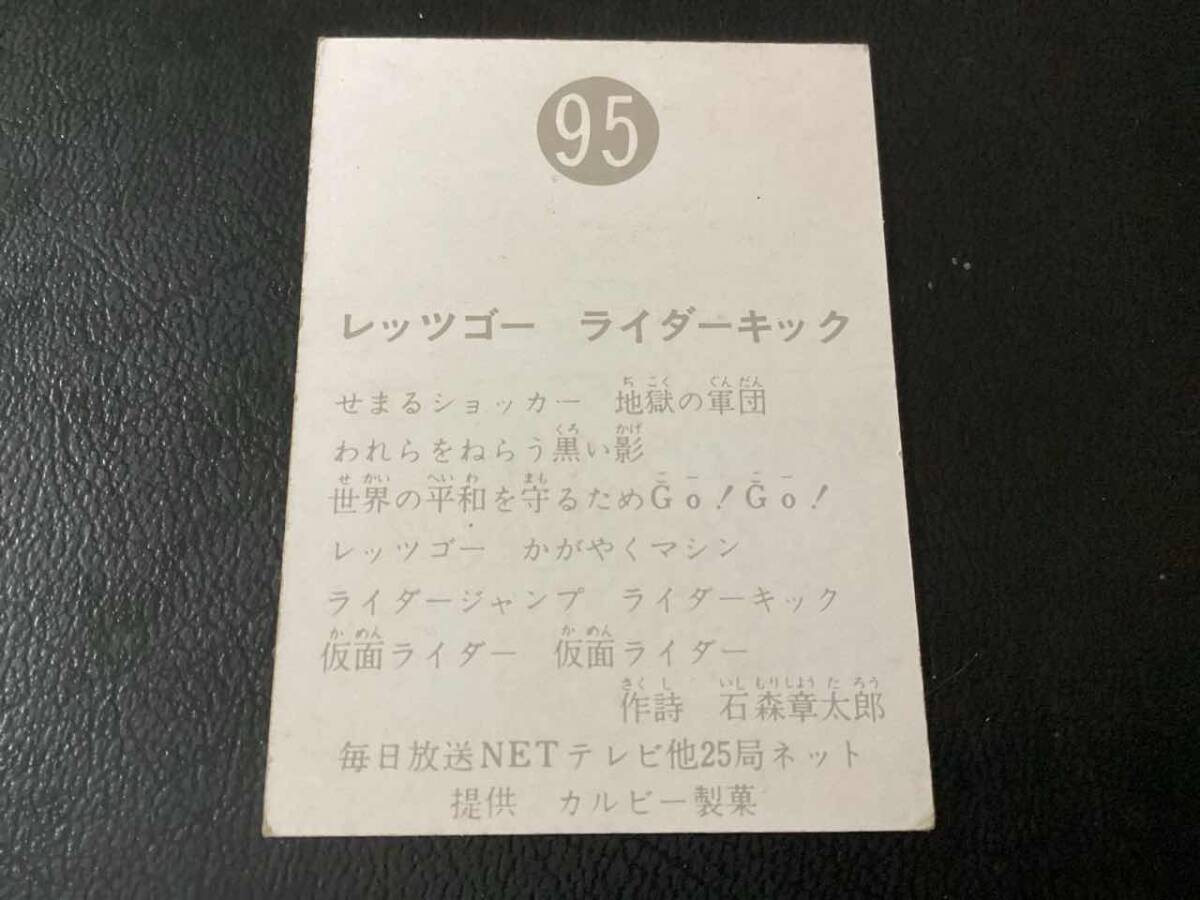 95
レッツゴー　ライダーキック
せまるショッカー　地獄の軍団
われらをねらう黒い影
世界の平和を守るためGo！Go！
レッツゴー　かがやくマシン
ライダージャンプ　ライダーキック
仮面ライダー　仮面ライダー
作詩　石森章太郎
毎日放送NETテレビ他25局ネット
提供　カルビー製菓